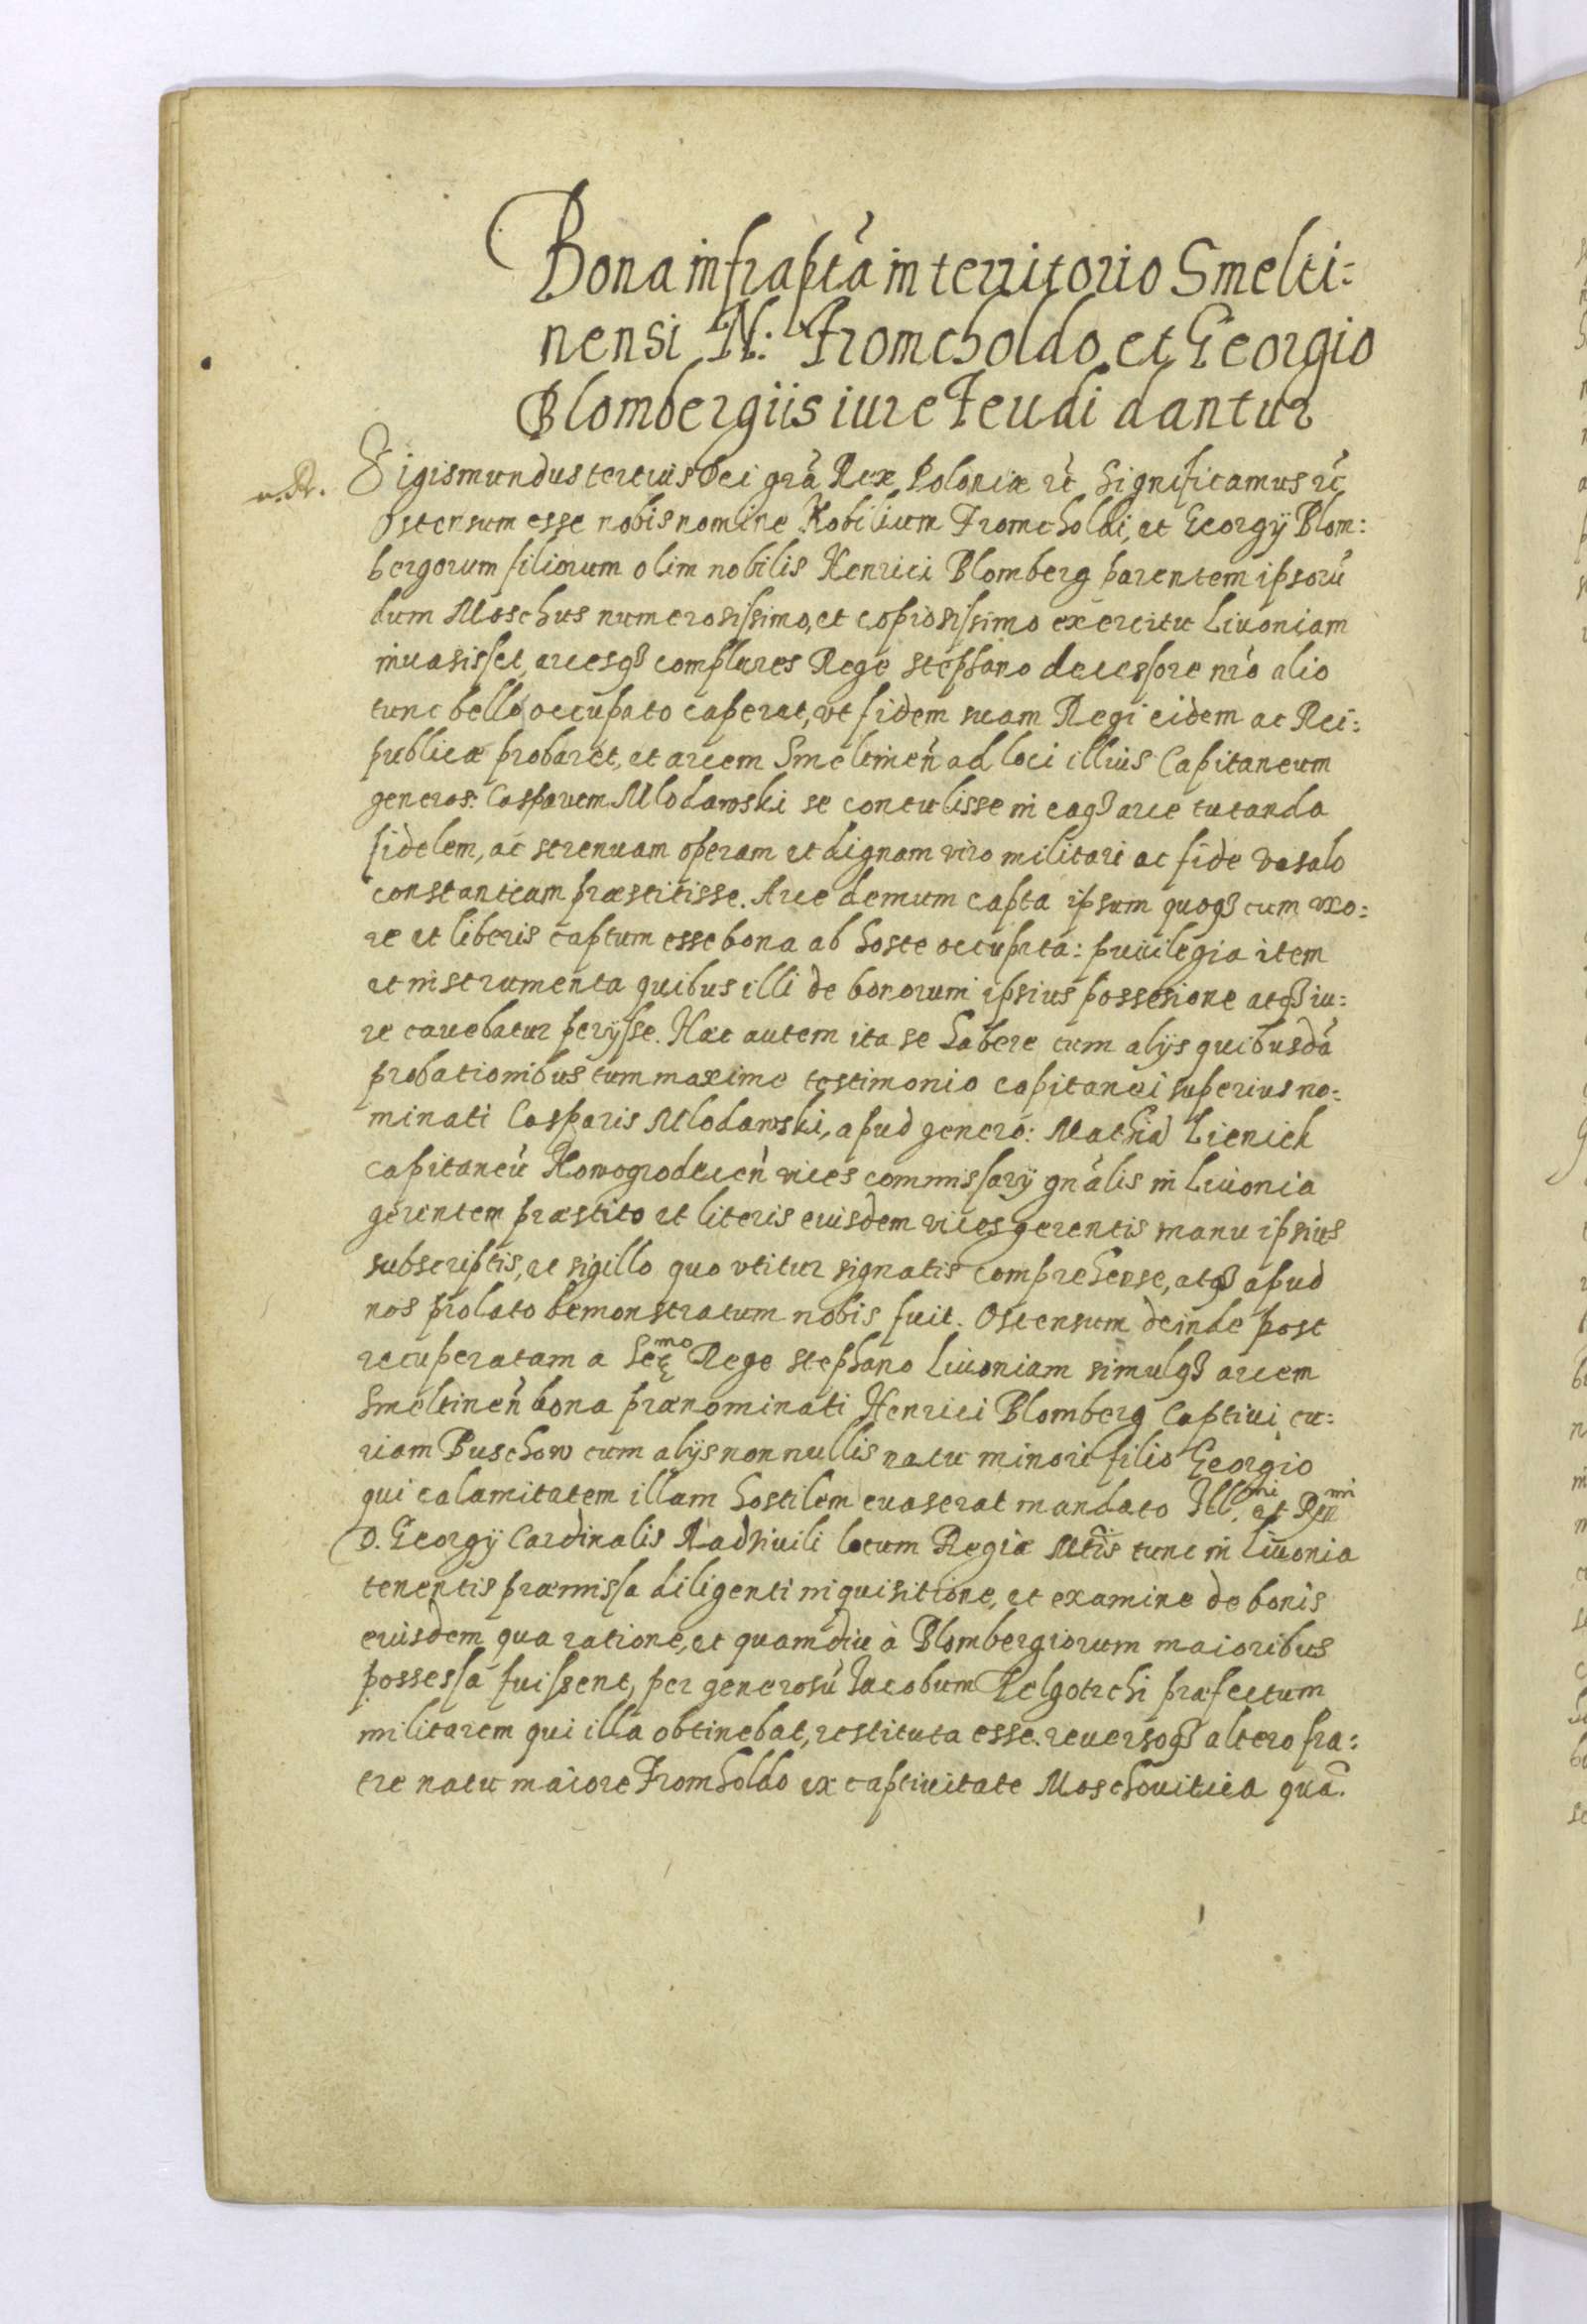 Bona infrapta in territorio Smelti:
nensi N: Fromcholdo et Georgio
Blombergiis iure Feudi dantur
Sigismundus tertius Dei gra Rex Poloniæ etc Significamus etc
Ostensum esse nobis nomine Nobilium Fromcholdi, et Georgÿ Blom:
bergorum filiorum olim nobilis Henrici Blomberg parentem ipsorū
dum Moschus numerosissimo, et copiosissimo exercitu Liuoniam
inuasisset, arcesq3 complures Rege Stephano decessore nro alio
tunc bello occupato caperet, vt fidem suam Regi eidem ac Rei:
publicæ probaret, et arcem Smeltineñ ad loci illius Capitaneum
generos: Casparum Mlodawski se contulisse in eaq3 arce tutanda
fidelem, ac strenuam operam et dignam viro militari ac fide vasalo
constantiam præstitisse. Arce demum capta ipsum quoq3 cum vxo:
re et liberis captum esse bona ab hoste occupata: priuilegia item
et instrumenta quibus illi de bonorum ipsius possesione atq3 iu:
re cauebatur perÿsse. Hæc autem ita se habere cum alÿs quibusdā
probationibus tum maxime testimonio capitanei superius no:
minati Casparis Mlodawski, apud genero: Mathiā Lieniek
capitaneū Nowogrodeceñ vices commissarÿ gnālis in Liuonia
gerentem præstito et literis eiusdem vices gerentis manu ipsius
subscriptis, et sigillo quo vtitur signatis comprehense, atq3 apud
nos prolato demonstratum nobis fuit. Ostensum deinde post
recuperatam a Seęmo Rege Stephano Liuoniam simulq3 arcem
Smeltineñ bona prænominati Henrici Blomberg captiui cu:
riam Puschow cum alÿs nonnullis natu minori filio Georgio
qui calamitatem illam hostilem euaserat mandato Illmi et Reumi
D. Georgÿ Cardinalis Radziuili locum Regiæ Mtis tunc in Liuonia
tenentis præmissa diligenti inquisitione, et examine de bonis
eiusdem qua ratione, et quamdiu à Blombergiorum maioribus
possessa fuissent, per generosū Iacobum Pelgotrchi præfectum
militarem qui illa obtinebat, restituta esse. reuersoq3 altero fra:
tre natu maiore Fromholdo ex captiuitate Moschouitica quā.